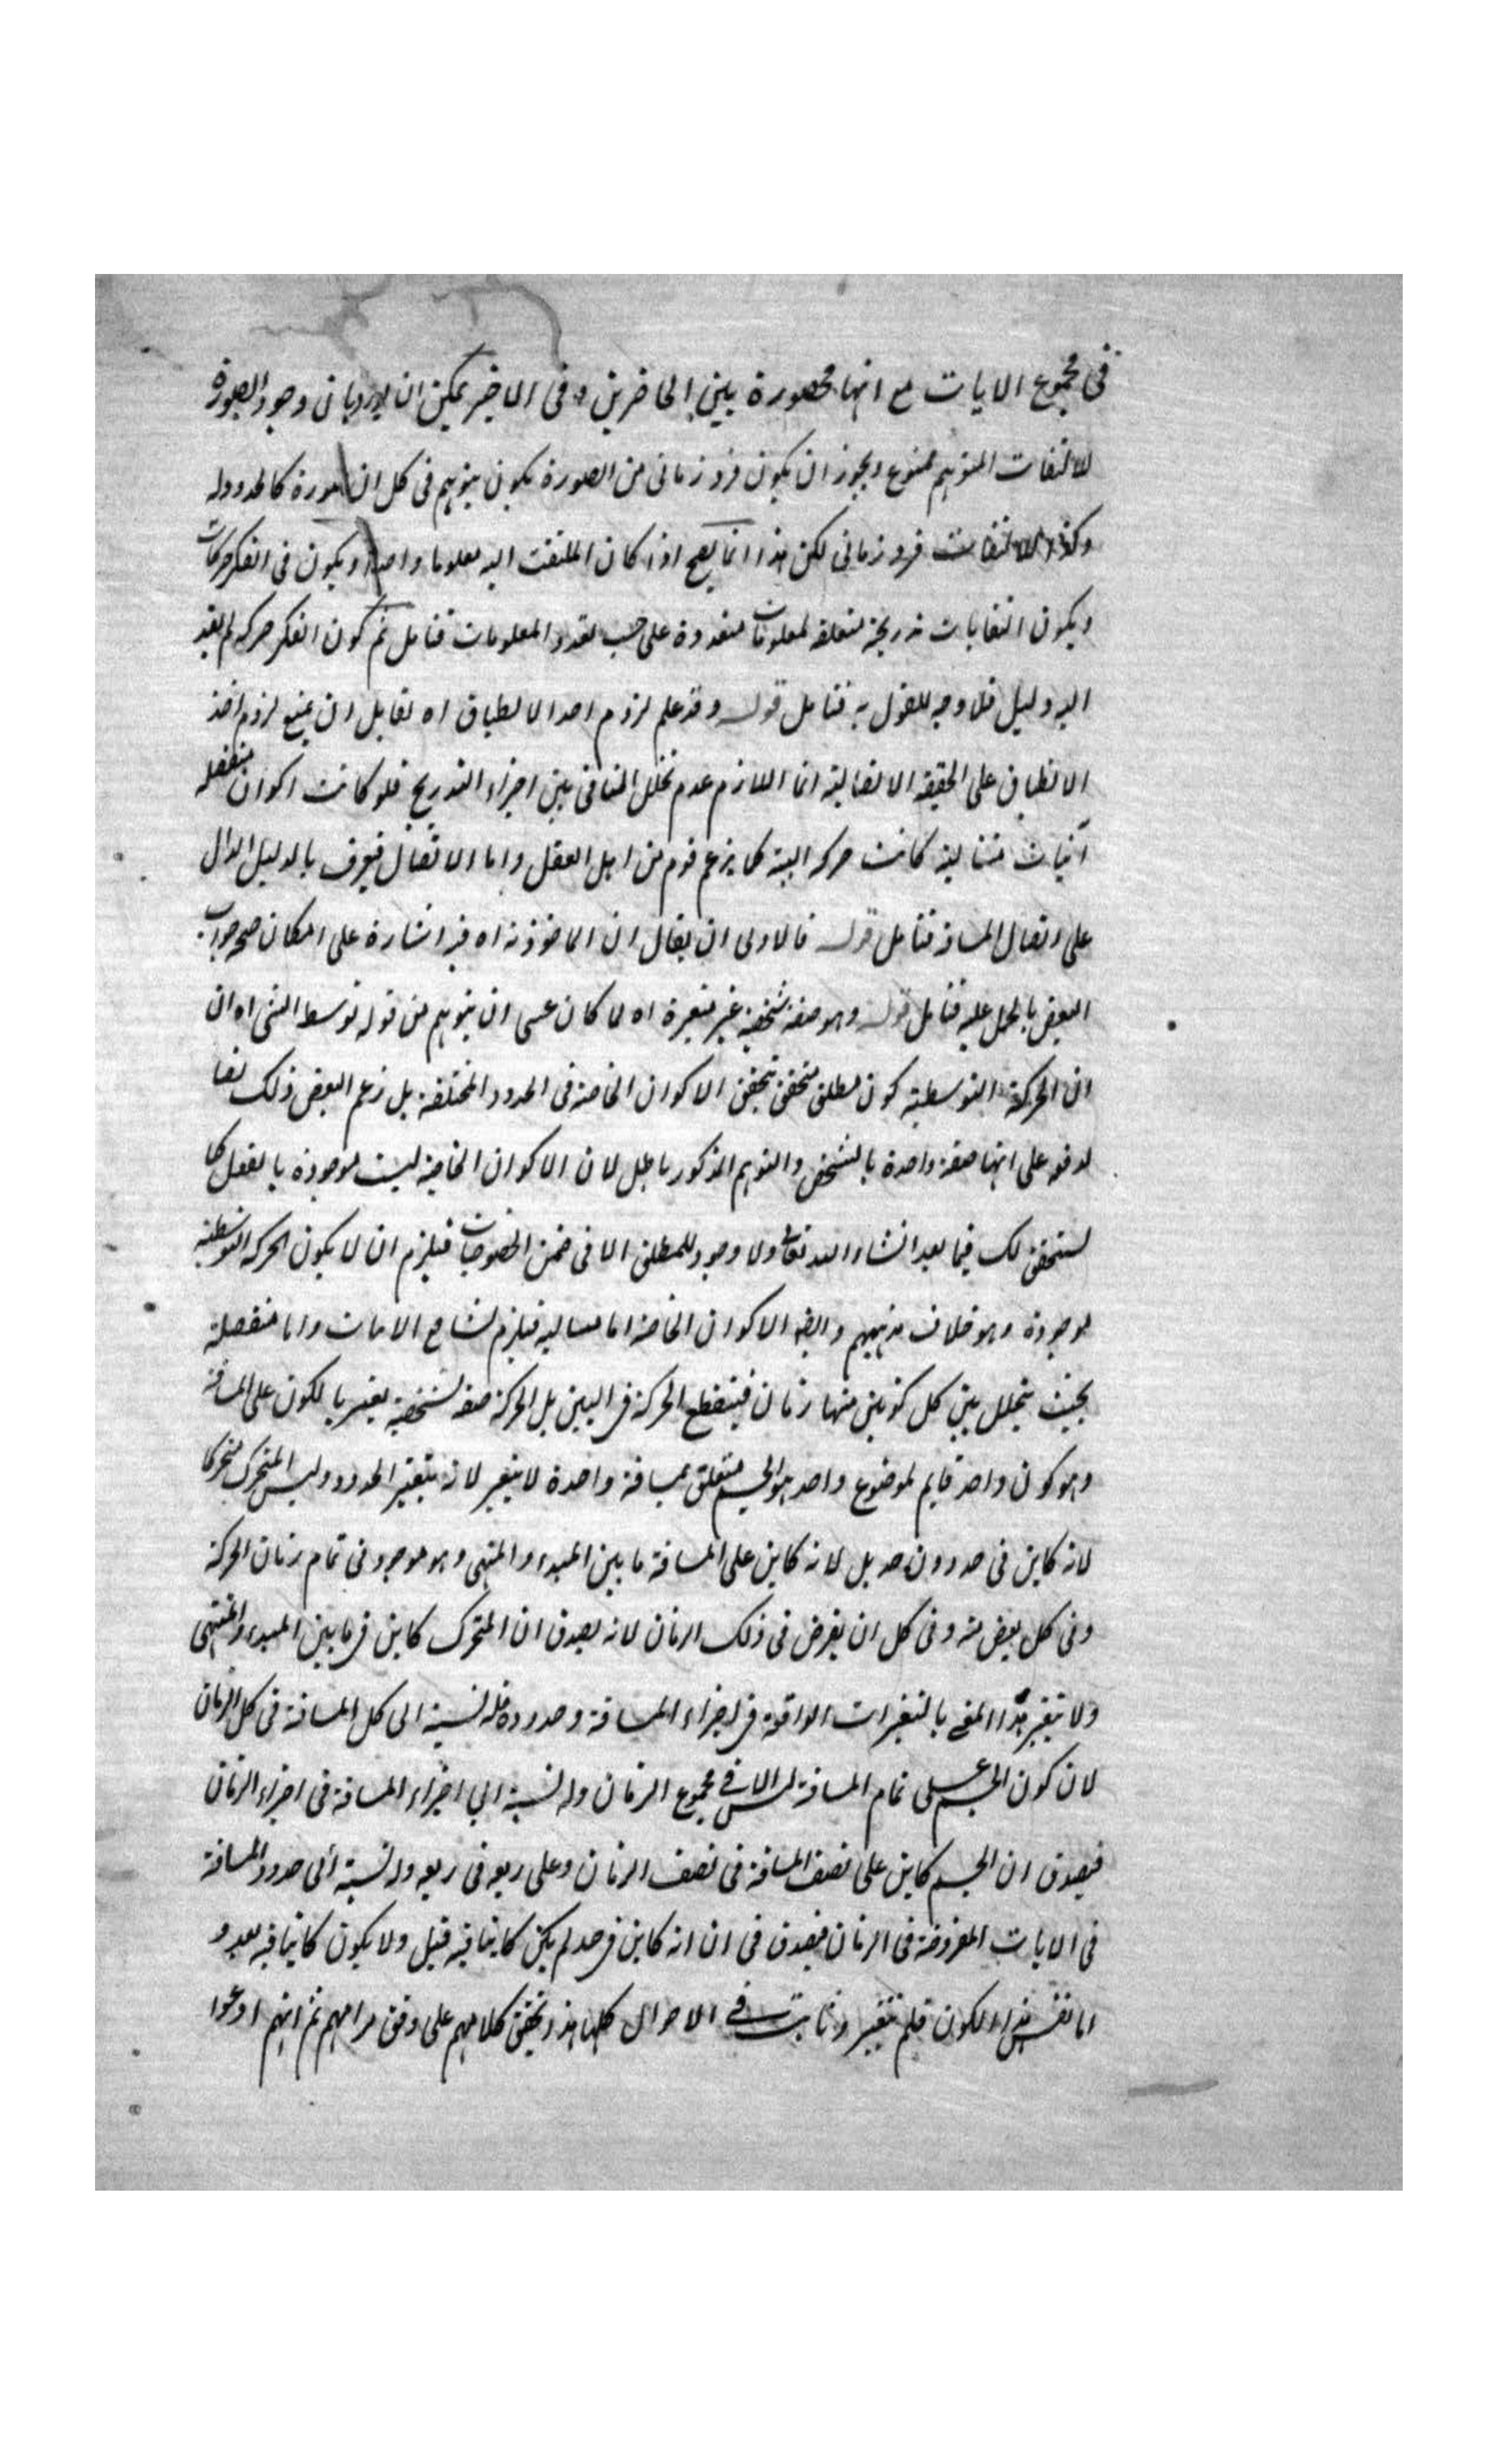 فى مجموع الايات مع انها محصورة بين الحاضرين و فى الاخير يمكن ان يورد بان وجود الصورة
للالتفات المتوهم ممنوع و يجوز ان يكون فرد زمانى من الصورة يكون يتوهم فى كل ان صورة كالحدود له
وكذا الالتفات فرد زمانى لكن هذا انما يصح اذا كان الملتفت اليه معلوما واحدا و يكون فى الفكر حركات
ويكون التفاتات تدريجية متعلقة لمعلومات متعددة على حسب تعدد المعلومات فتامل ثم كون الفكر حركه لم يقد
اليه دليل فلا وجه للقول به فتامل قوله وقد علم لزوم احد الانطباق اه لقايل ان يمنع لزوم اخذ
الانطباق على الحقيقة الاتصالية انما اللازم عدم تخلل المنافى بين اجزاء التدريج فلو كانت اكوان منفصلة
آنيات متتالية كانت حركه البتة كما يزعم قوم من اهل العقل واما الاتصال فيعرف بالدليل الدال
على اتصال المسافة فتامل قوله فالاولى ان يقال ان الماخوذ ته اه فيه اشارة على امكان صحة جواب
البعض بالحمل عليه فتامل قوله وهو صفة شخصية غير متغيرة اه لما كان عسى ان يتوهم من قوله توسط الشى اه ان
ان الحركة التوسطية كون مطلق متحقق بتحقق الاكوان الخاصة فى الحدود المختلفة بل زعم البعض ذلك نصا
لدفعه على انها صفة واحدة بالشخص والتوهم المذكور باطل لان الاكوان الخاصة ليست موجودة بالفعل كما
ستحقق لك فيما بعد انشاء الله تعالى ولا وجود للمطلق الا فى ضمن الخصوصيات فيلزم ان لا يكون الحركه التوسطية
موجودة وهو خلاف مذهبهم وايضا الاكوان الخاصة اما متتالية فيلزم تتابع الانات واما منفصلة
بحيث يتخلل بين كل كونين منها زمان فينقطع الحركة فى البين بل الحركة صفة شخصية يعبر بالكون على المسافة
وهو كون واحد قايم لموضوع واحد هو الجسم متعلق بمسافة واحدة لا يتغير لانه بتغير الحدود وليس المتحرك متحركا
لانه كاين فى حد دون حد بل لانه كاين على المسافة ما بين المبدء و المنتهى وهو موجود فى تمام زمان الحركة
وفى كل بعض منه وفى كل ان يفرض فى ذلك الزمان لانه يصدق ان المتحرك كاين فى ما بين المبدء والمنتهى
ولا يتغير هذا المعنى بالتغيرات الواقعة فى اجزاء المسافة وحدوده فله نسبة الى كل المسافة فى كل الزمان
لان كون الجسم على تمام المسافة ليس الا فى مجموع الزمان وله نسبة الى اجزاء المسافة فى اجزاء الزمان
فيصدق ان الجسم كاين على نصف المسافة فى نصف الزمان وعلى ربعه فى ربعه وله نسبة الى حدود المسافة
فى الايات المفروضة فى الزمان فيصدق فى ان انه كاين فى حد لم يكن كاينا فيه قبل ولا يكون كاينا فيه بعد و
اما نفس هذا الكون فلم يتغير وثابت فى الاحوال كلها هذا تحقيق كلامهم على وفق مرامهم ثم انهم ادعوا